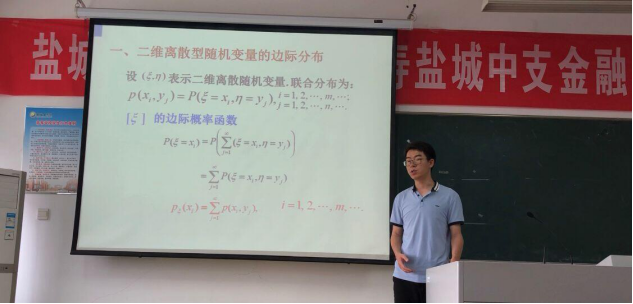 盐城
寿盐城中支金融
一、二维离散型随机变量的边际分布
设 (ξ,η) 表示二维离散随机变量.联合分布为:
p(xᵢ,yⱼ)=P(ξ=xᵢ,η=yⱼ), i=1,2,⋯,m,⋯; j=1,2,⋯,n,⋯.
[ξ] 的边际概率函数
P(ξ=xᵢ)=P(∑ⱼ₌₁^∞(ξ=xᵢ,η=yⱼ))
=∑ⱼ₌₁^∞P(ξ=xᵢ,η=yⱼ)
p_ξ(xᵢ)=∑ⱼ₌₁^∞p(xᵢ,yⱼ), i=1,2,⋯,m,⋯.